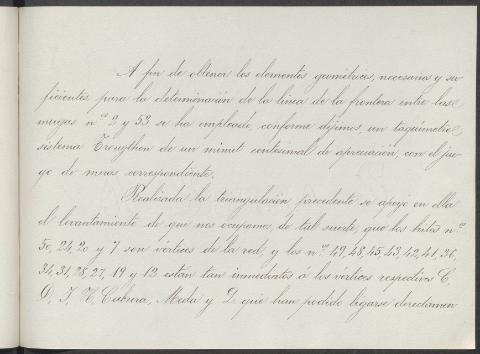 A fin de obtener los elementos geométricos, necesarios y su
ficientes para la determinación de la línea de la frontera entre las
mugas nos 2 y 53 se ha empleado, conforme dijimos, un taquímetro
sistema Troughton de un minut centesimal de apreciación, con el jue-
go de miras correspondiente.
Realizada la triangulación precedente se apoyó en ella
el levantamiento de que nos ocupamos, de tal suerte, que los hitos nos
50, 24, 20 y 7 son vértices de la red, y los nos 49, 48, 45, 43, 42, 41, 36,
34, 31, 28, 27, 19 y 12 están tan inmediatos á los vértices respectivos C,
D, I, Cabrera, Meda y L que han podido ligarse directamen